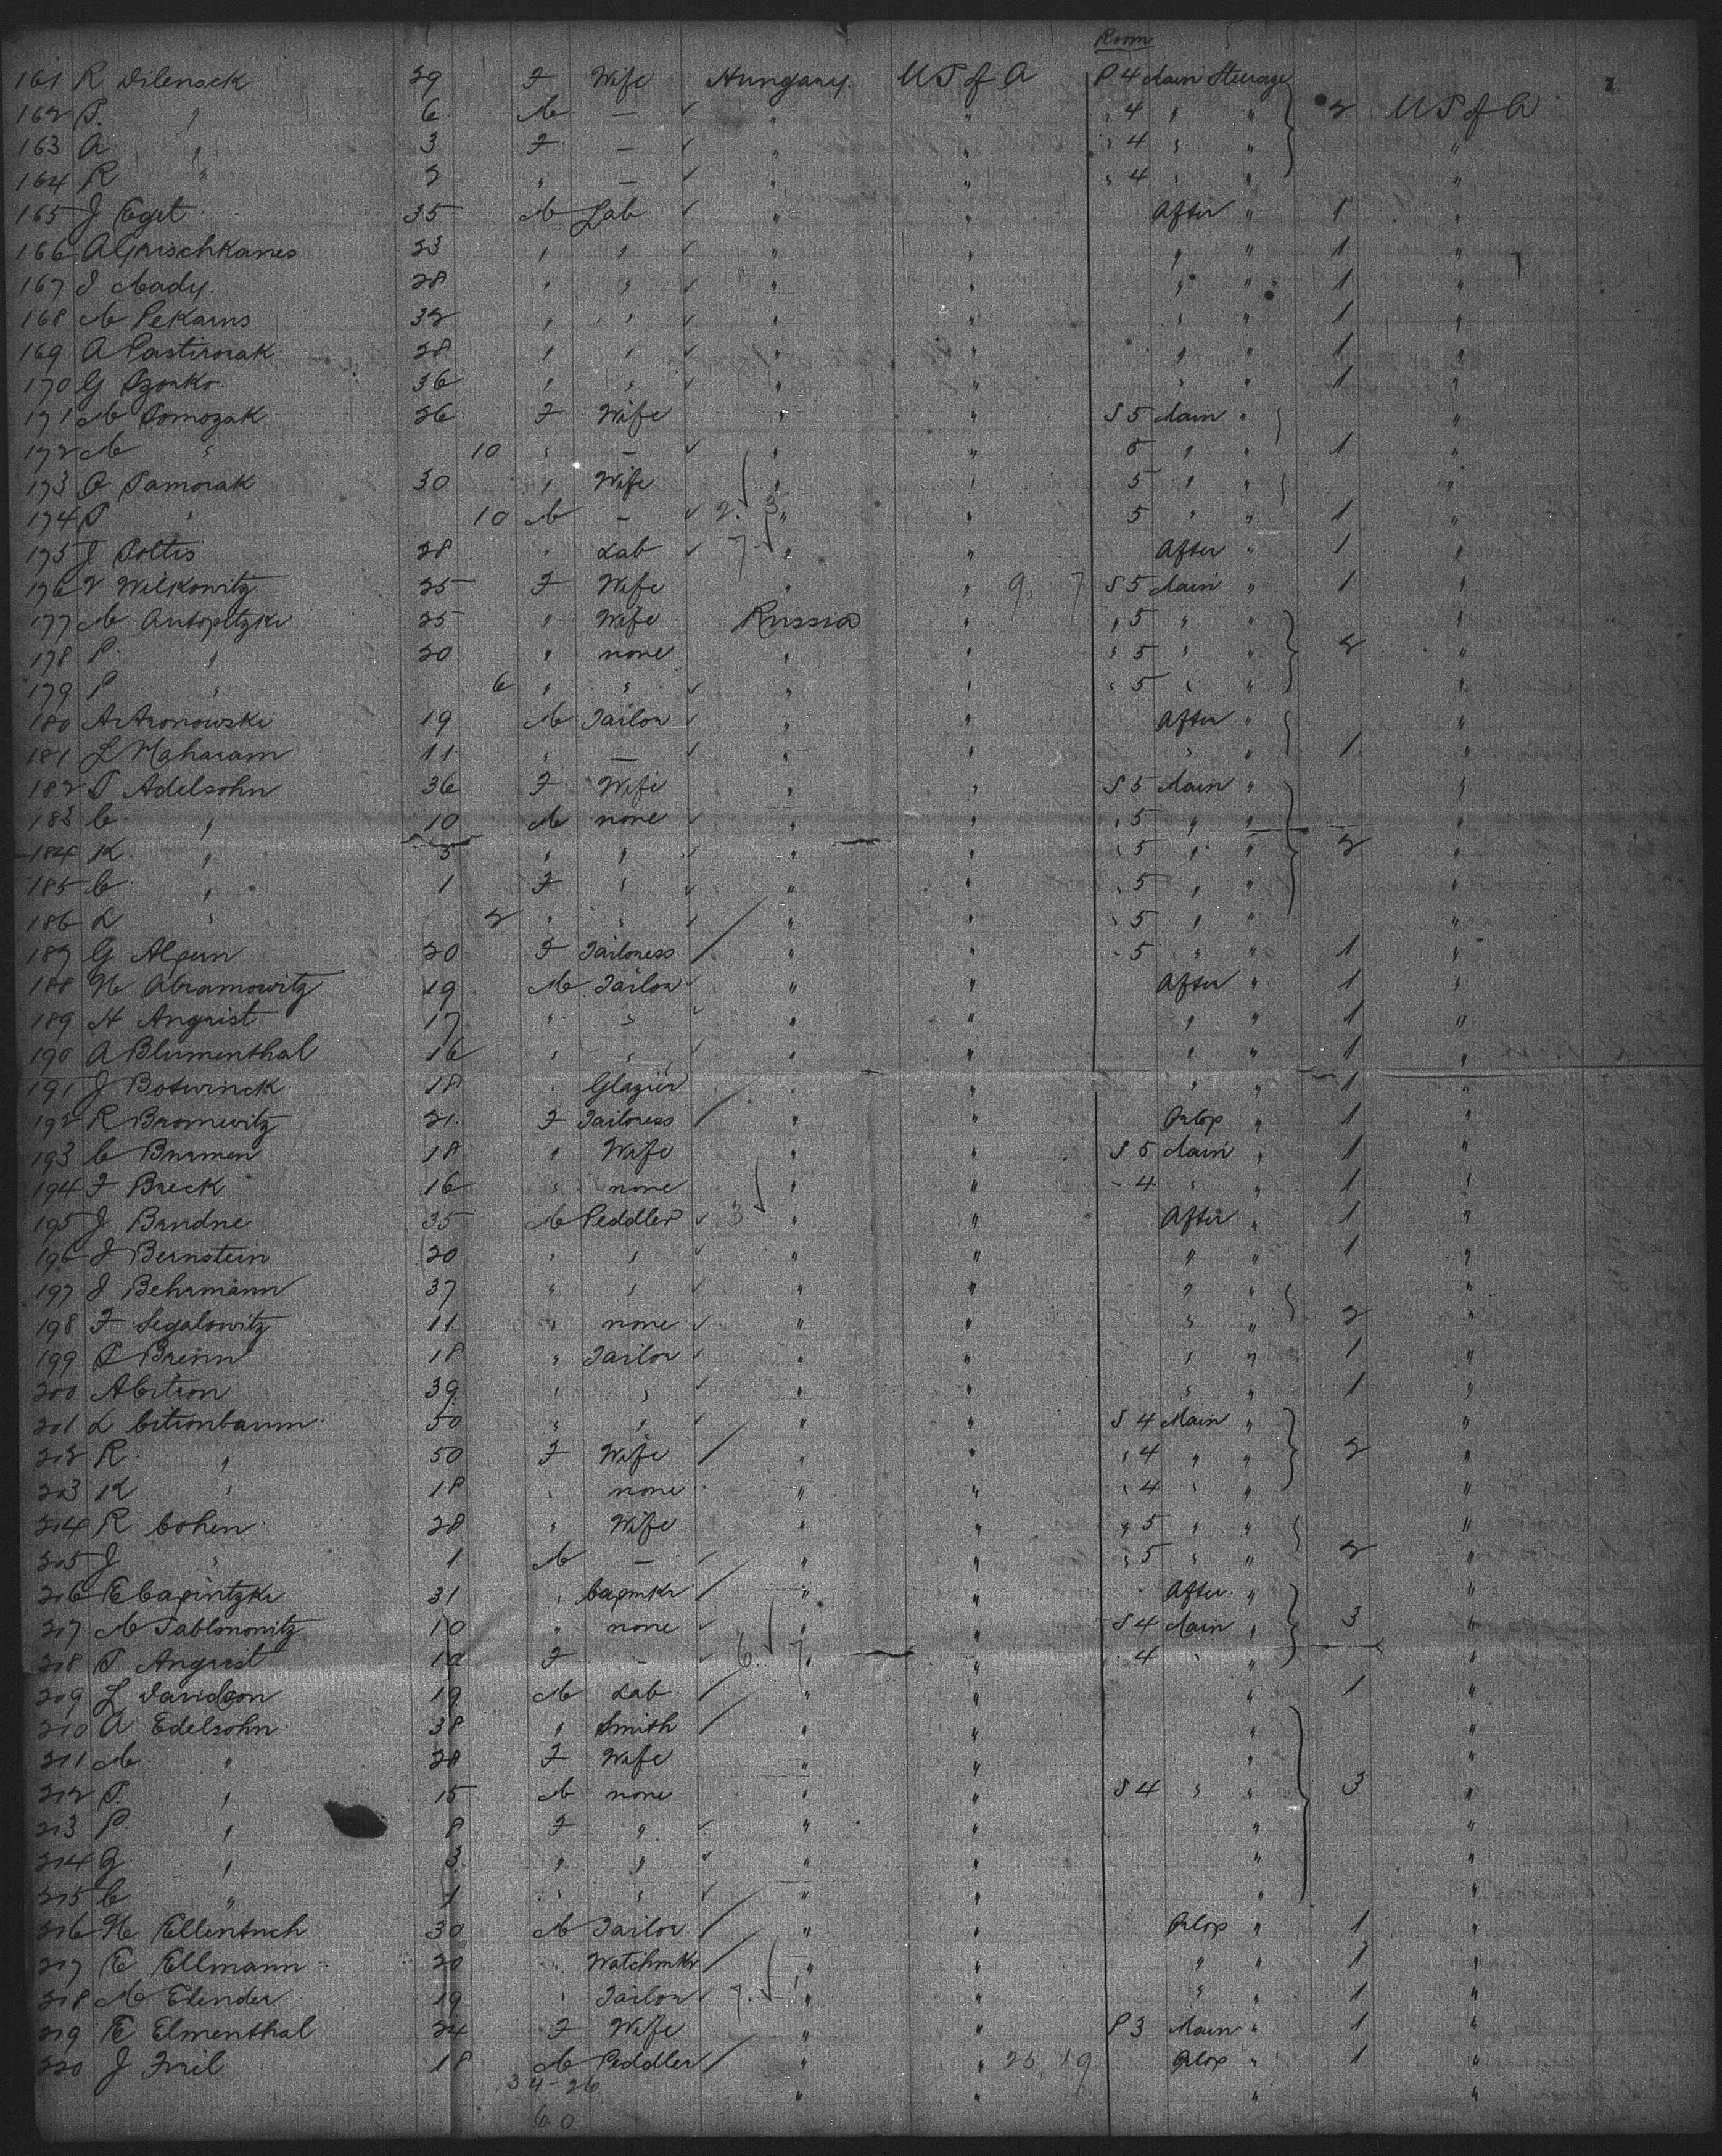 Room
161 R Dilensck 29 F Wife Hungary. U S of A P 4 Main Steerage
162 S. " 6 M — " " " 4 " " 2 U S of A
163 A " 3 F — " " " 4 " " "
164 R " 2 " — " " " 4 " " "
165 J Eget 35 M Lab " " After " 1 "
166 A Grischkanes 23 " " " " " " 1 "
167 J Mady. 28 " " " " " " 1 "
168 M Pekarns 32 " " " " " " 1 "
169 A Pastirorak 28 " " " " " " 1 "
170 G Szonko 36 " " " " " " 1 "
171 M Somozak 26 F Wife " " S 5 Main " "
172 M " 10 " — " " 5 " " 1 "
173 A Samorak 30 " Wife " " 5 " " "
174 S " 10 M — " " 5 " " 1 "
175 J Soltis 28 " Lab " " After " 1 "
176 V Wilkowitz 25 F Wife " " 9, 7 S 5 Main " 1 "
177 M Antopitzki 25 " Wife Russia " " 5 " " "
178 P. " 20 " none " " " 5 " " 2 "
179 P " 6 " " " " " 5 " " "
180 A Aronowski 19 M Tailor " " After " "
181 L Maharam 11 " — " " " " 1 "
182 S Adelsohn 36 F Wife " " S 5 Main " "
183 C " 10 M none " " " 5 " " "
184 K. " 5 " " " " " 5 " " 2 "
185 C. " 1 F " " " " 5 " " "
186 L " 2 " " " " " 5 " " "
187 G Alpern 20 F Tailoress " " " 5 " " 1 "
188 H Abramowitz 19 M Tailor " " After " 1 "
189 H Angrist 17 " " " " " " 1 "
190 A Blumenthal 16 " " " " " " 1 "
191 J Botwinck 18 " Glazier " " " " 1 "
192 R Bromewitz 21 F Tailoress " " Orlop " 1 "
193 C Burmen 18 " Wife " " S 5 Main " 1 "
194 F Breck 16 " none " " " 4 " " 1 "
195 J Brndne 35 M Peddler 3 " " After " 1 "
196 J Bernstein 20 " " " " " " 1 "
197 J Behrmann 37 " " " " " " "
198 F Segalowitz 11 " none " " " " 2 "
199 S Brenn 18 " Tailor " " " " 1 "
200 A Citron 39 " " " " " " 1 "
201 L Citronbaum 50 " " " " S 4 Main " "
202 R. " 50 F Wife " " " 4 " " 2 "
203 K " 18 " none " " " 4 " " "
204 R Cohen 28 " Wife " " " 5 " " "
205 J " 1 M — " " " 5 " " 2 "
206 E Capintzki 31 " Capmkr " " After " "
207 M Jablonowitz 10 " none " " S 4 Main " 3 "
208 S Angrist 10 F — 6. 7 " " " 4 " " "
209 L Davidson 19 M Lab " " " 1 "
210 A Edelsohn 38 " Smith " " " "
211 M " 28 F Wife " " " "
212 S. " 15 M none " " S 4 " " 3 "
213 P. " 8 F " " " " "
214 G " 3 " " " " " "
215 C " 1 " " " " " "
216 H Ellentuch 30 M Tailor " " Orlop " 1 "
217 E Ellmann 20 " Watchmkr " " " " 1 "
218 M Elender 19 " Tailor " " " " 1 "
219 E Elmenthal 24 F Wife " " P 3 Main " 1 "
220 J Fril 18 M Peddler " " 25, 19 Orlop " 1 "
34-26 " " " "
60